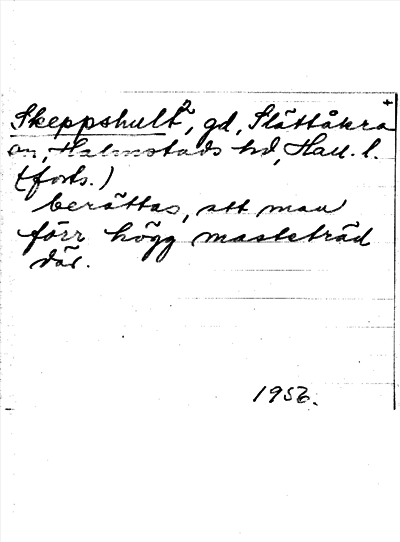 Skeppshult², gd, Slättåkra
sn, Halmstads hd, Hall. l.
(forts.)
berättas, att man
förr högg masteträd
där.
1956.